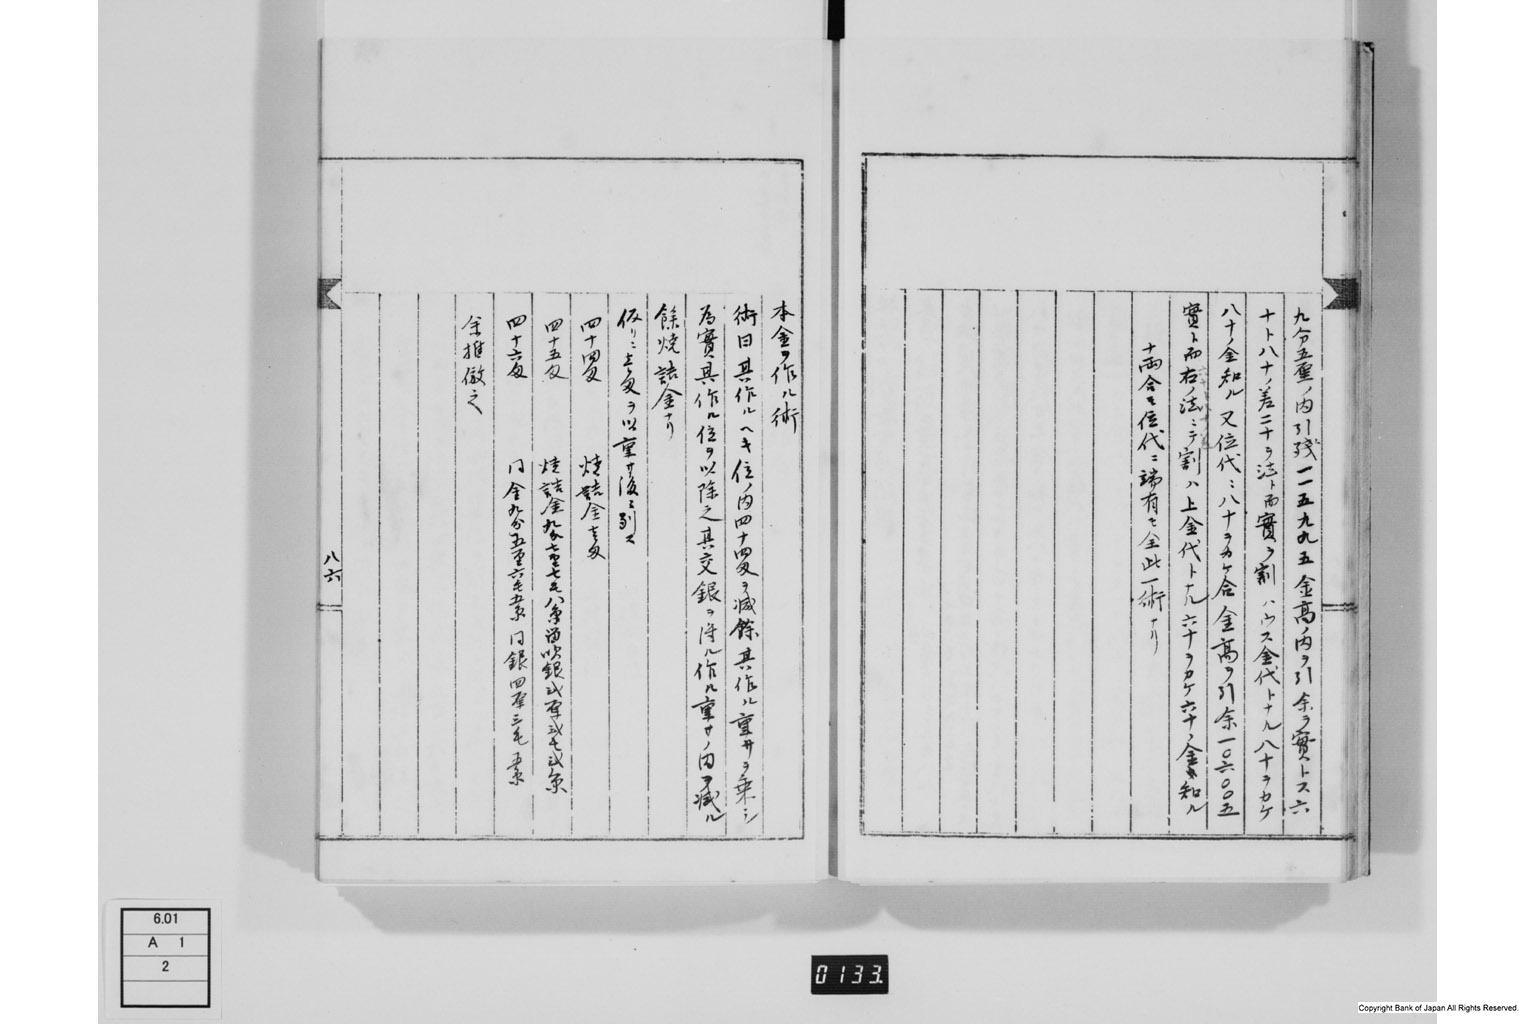 九分五厘ノ内引残一一五九九五金高ノ内ヲ引余ヲ實トス六
十ト八十ノ差二十ヲ法ト而實ヲ割ハウス金代トナル八十ヲカケ
八十ノ金知ル又位代ニ八十ヲカケ合金高ヲ引余一〇六〇〇五
實ト而右ノ法ニテ割ハ上金代トナル六十ヲカケ六十ノ金知ル
十両合モ位代ニ端有モ全此一術ナリ
本金ヲ作ル術
術曰其作ルヘキ位ノ内四十四匁ヲ減餘其作ル重サヲ乗シ
為實其作ル位ヲ以除之其交銀ヲ得ル作ル重サノ内ヲ減ル
餘焼詰金ナリ
仮リニ壱匁ヲ以重サ後ニ列ス
四十四匁 焼詰金壱匁
四十五匁 焼詰金九分七厘七毛八糸 銀弐厘弐毛弐糸
四十六匁 同金九分五厘六毛五糸 同銀四厘三毛五糸
余推倣之
八六
6.01
A 1
2
0133.
Copyright Bank of Japan All Rights Reserved.